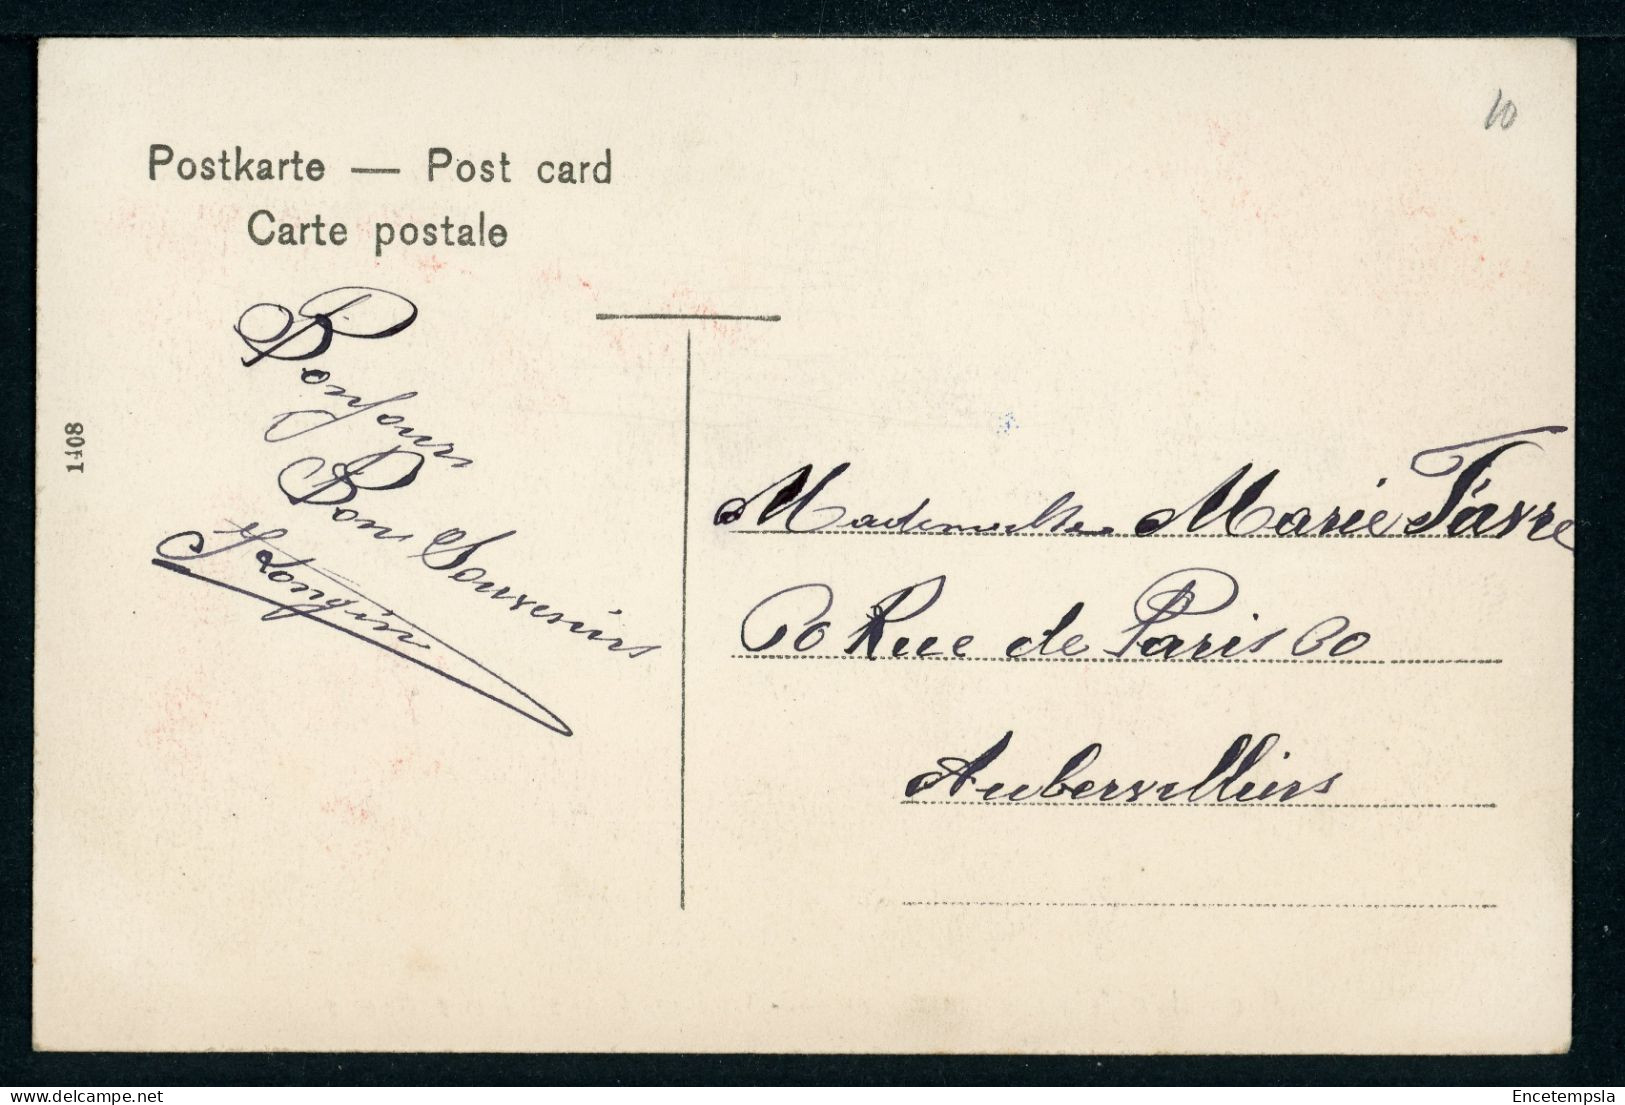 10
Postkarte — Post card
Carte postale
1408
Bonjour
Bon Souvenirs
Longin
Mademoiselle Marie Favre
60 Rue de Paris 60
Aubervilliers
delcampe.net
Encetempsla